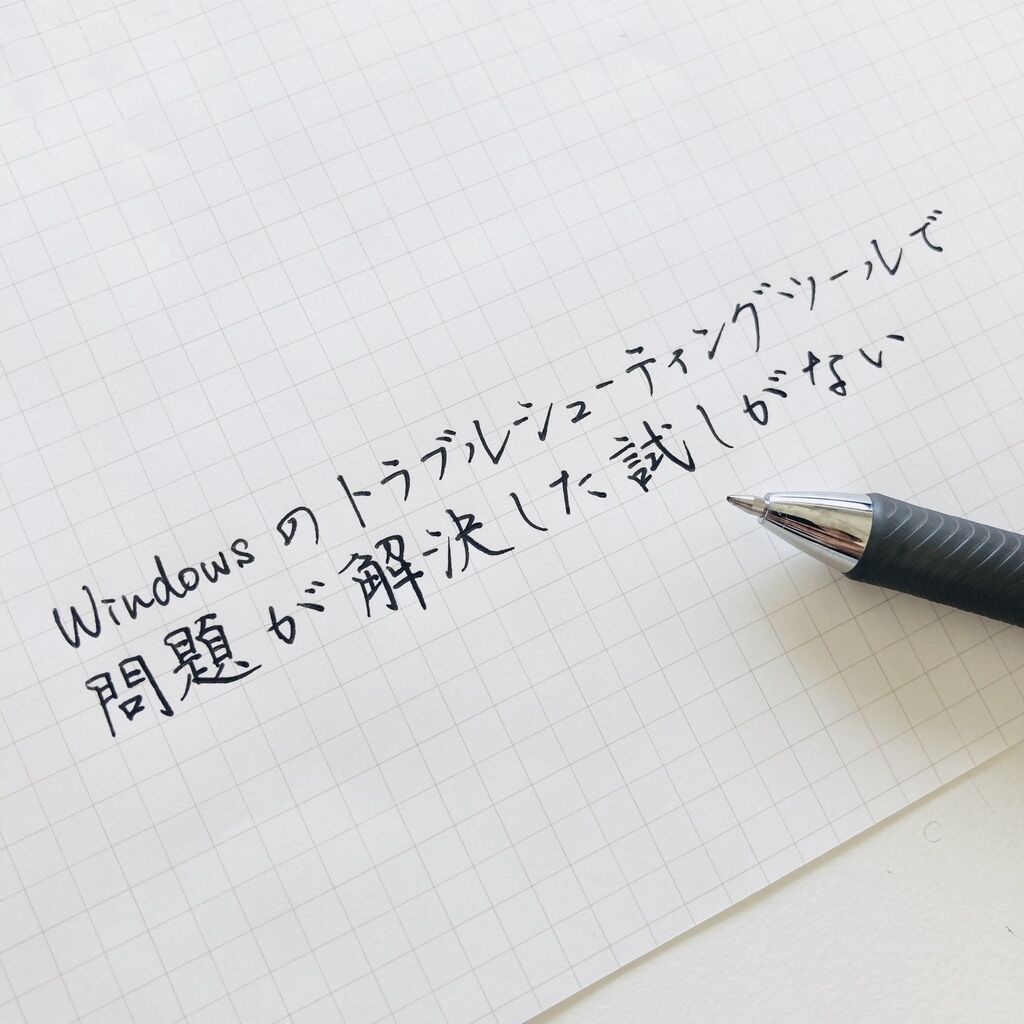 Windowsのトラブルシューティングツールで
問題が解決した試しがない